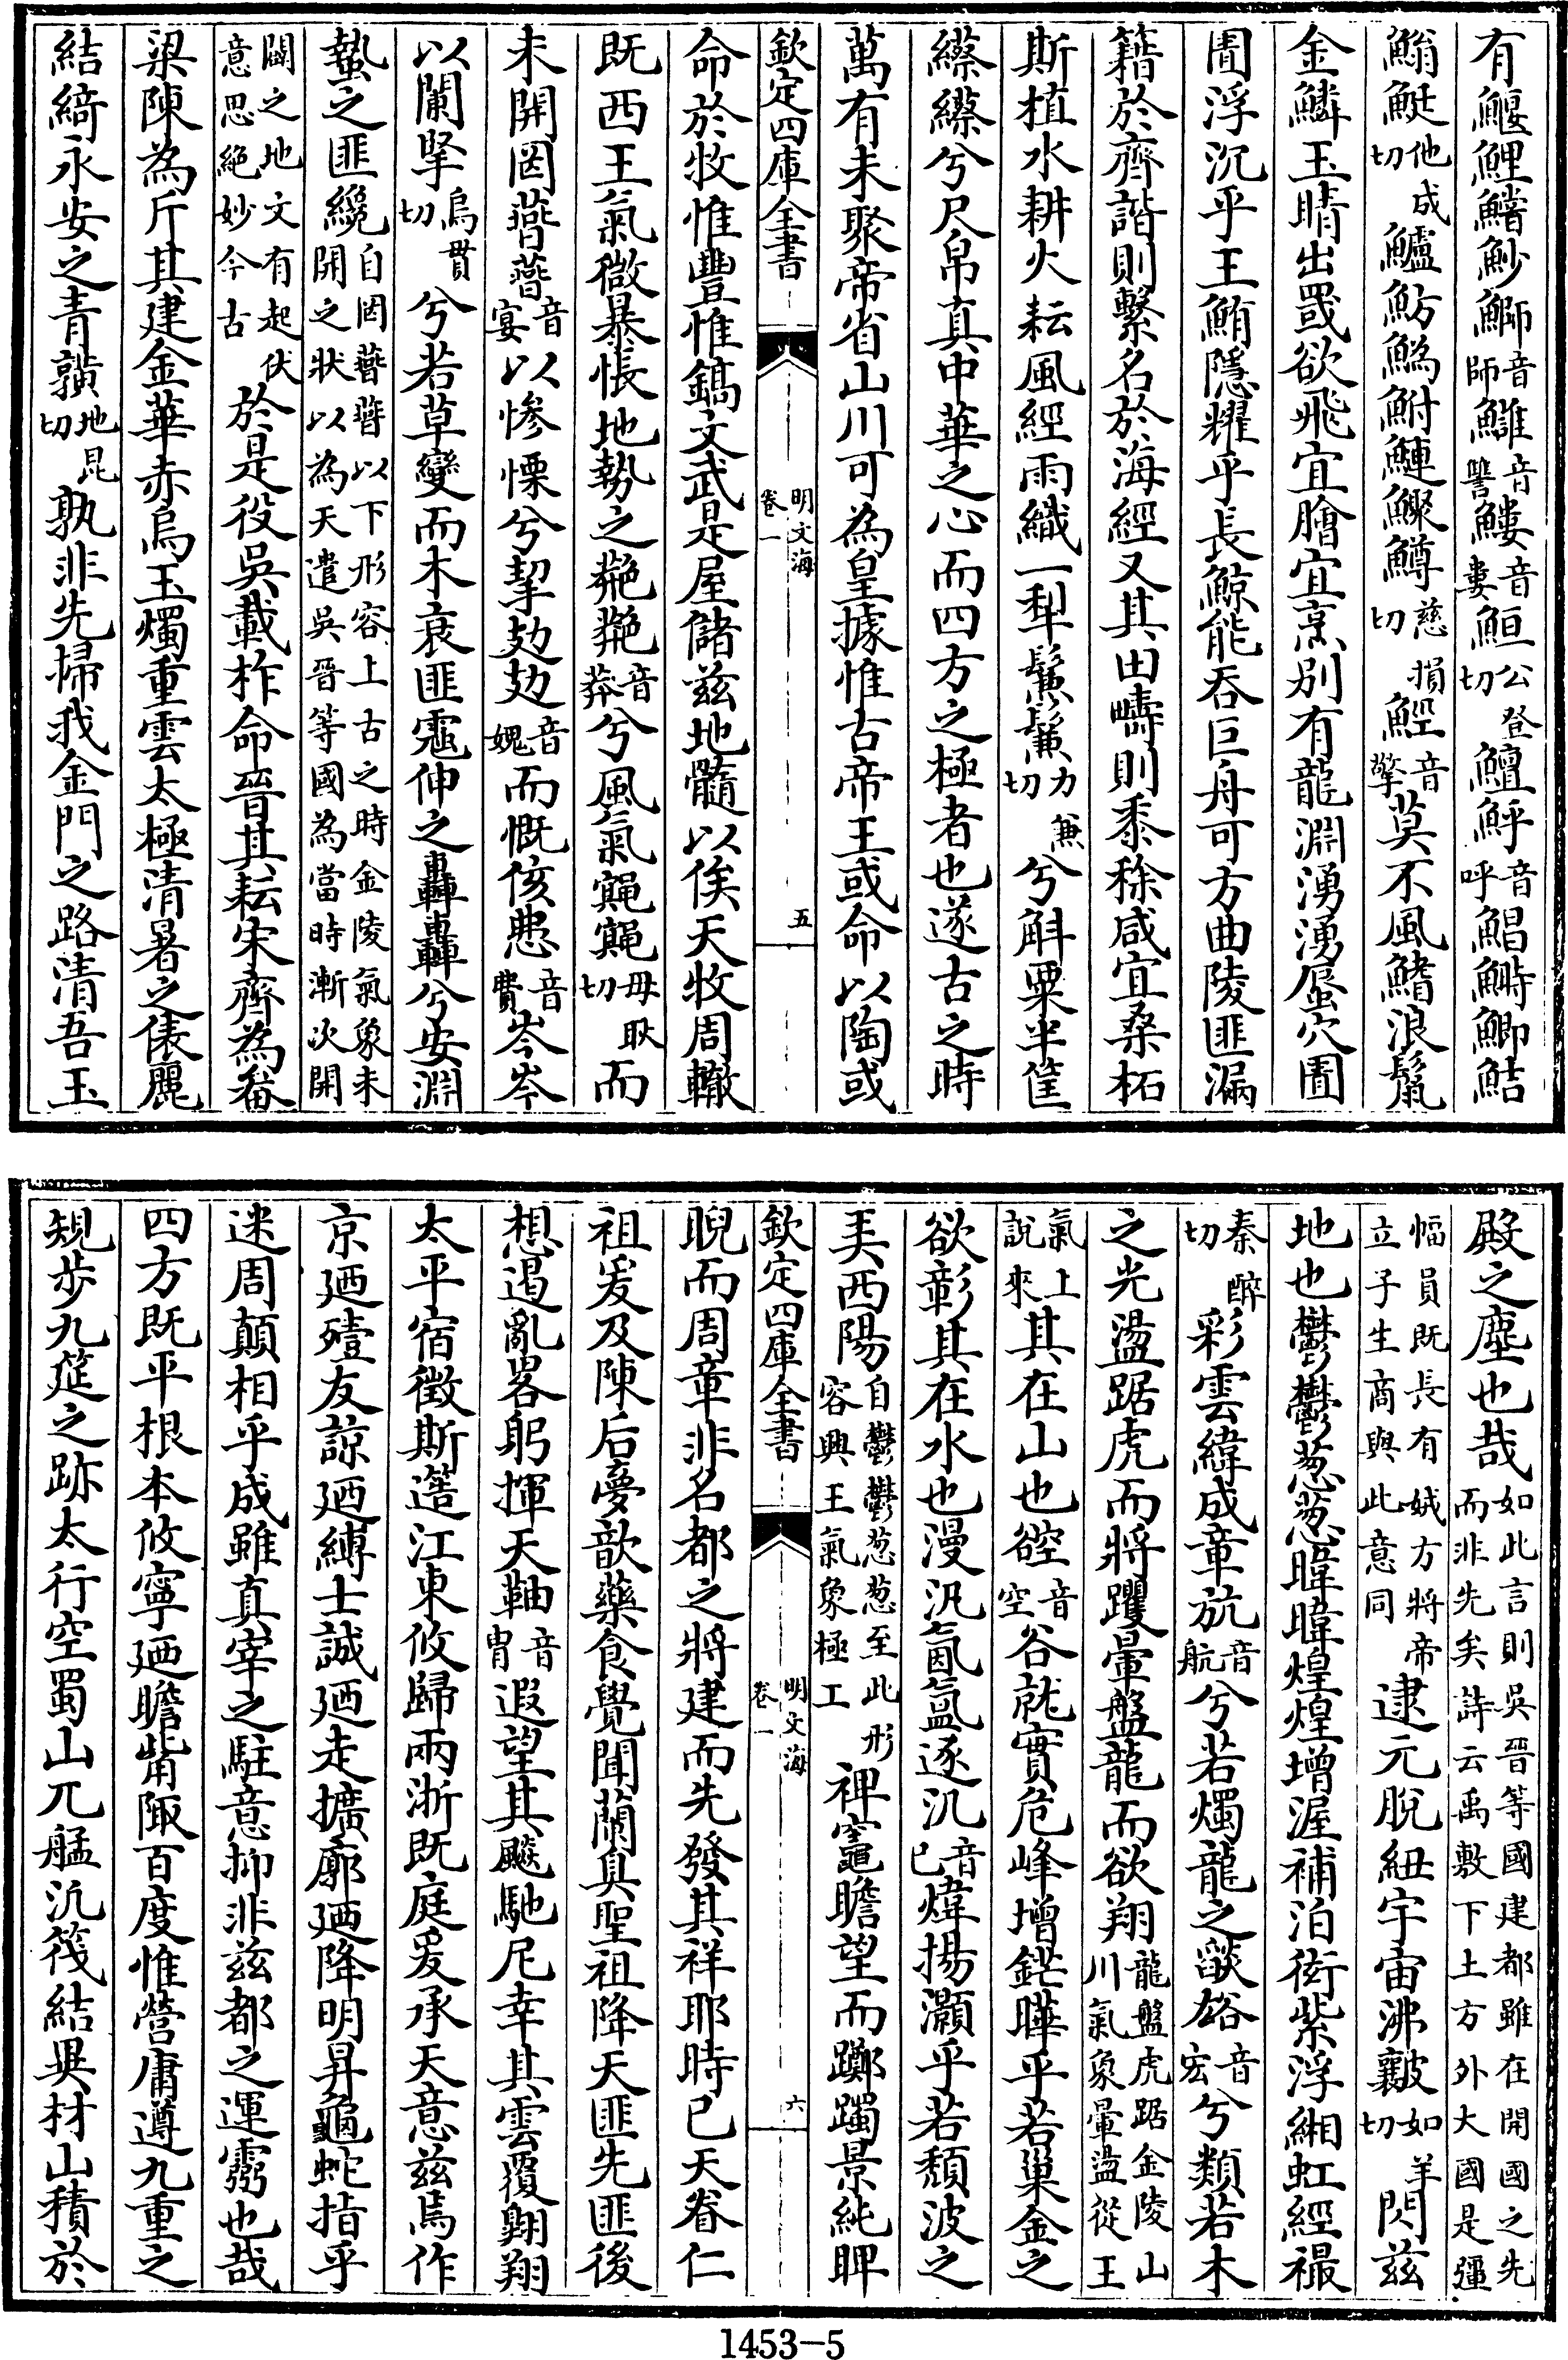 有鰋鯉鱨魦鰤音師鱃音讐鰻音婁䱎公登切鱣鮃音呼鯧鰣鯽鮚
鰯鮏他成切鱸魴鰞鮒鰱鱖鱒慈損切䱓音擎莫不風鰭浪鬛
金鱗玉睛出罭欲飛宜膾宜烹别有龍淵湧湧蜃穴圊
圊浮沉乎王鮪隱耀乎長鯨能吞巨舟可方曲陵匪漏
籍於齊諧則繫名於海經又其田疇則黍稌咸宜桑柘
斯植水耕火耘風經雨織一犁鬑鬑力兼切兮斛粟半筐
纂纂兮尺帛真中華之心而四方之極者也遂古之時
萬有未聚帝省山川可為皇據惟古帝王或命以陶或
欽定四庫全書 明文海 卷一 五
命於牧惟豐惟鎬文武是屋儲兹地髓以俟天牧周轍
既西王氣微暴悵地勢之𦫼𦫼音莽兮風氣𪓷𪓷母耿切而
未開罔𦿆𦿆音宴以慘慄兮挈攰攰音媿而慨侅㥱音費岑岑
以闌掔烏貫切兮若草變而木衰匪霆伸之轟轟兮安淵
蟄之匪纔自罔𦿆𦿆以下形容上古之時金陵氣象未開之狀以為天遣吳晉等國為當時漸次開
闢之地文有起伏意思絕妙今古於是役吳載柞命晉其耘宋齊為菑
梁陳為斤其建金華赤烏玉燭重雲太極清暑之俵麗
結綺永安之青黷地昆切孰非先掃我金門之路清吾玉
殿之塵也哉如此言則吳晉等國建都雖在開國之先而非先矣詩云禹敷下土方外大國是疆
幅員既長有娀方將帝立子生商與此意同逮元脫紐宇宙沸䵢如羊切閃兹
地也鬱鬱葱葱暐暐煌煌增渥補泊銜紫浮緗虹經禔
秦醉切彩雲緯成章斻音航兮若燭龍之燄谹音宏兮類若木
之光盪踞虎而將躩暈盤龍而欲翔龍盤虎踞金陵山川氣象暈盪從王
氣上說來其在山也䆪音空谷就實危峰增鋩曄乎若巢金之
欲彰其在水也漫汎氤氲逐氿音已煒揚灝乎若頹波之
美西陽自鬱鬱葱葱至此形容興王氣象極工裨竈瞻望而躑躅景純睥
欽定四庫全書 明文海 卷一 六
睨而周章非名都之將建而先發其祥耶時已天眷仁
祖爰及陳后夢歆藥食覺聞蘭臭聖祖降天匪先匪後
想遏亂畧躬揮天䩜音冑遐望其飇馳凥幸其雲覆翺翔
太平宿徵斯造江東攸歸兩浙既庭爰承天意兹焉作
京廼殪友諒廼縛士誠廼走擴廓廼降明昇龜蛇指乎
迷周顛相乎成雖真宰之駐意抑非兹都之運靈也哉
四方既平根本攸寧廼瞻觜陬百度惟營庸遵九重之
規步九筵之跡太行空蜀山兀艋泝筏結異材山積於
1453-5